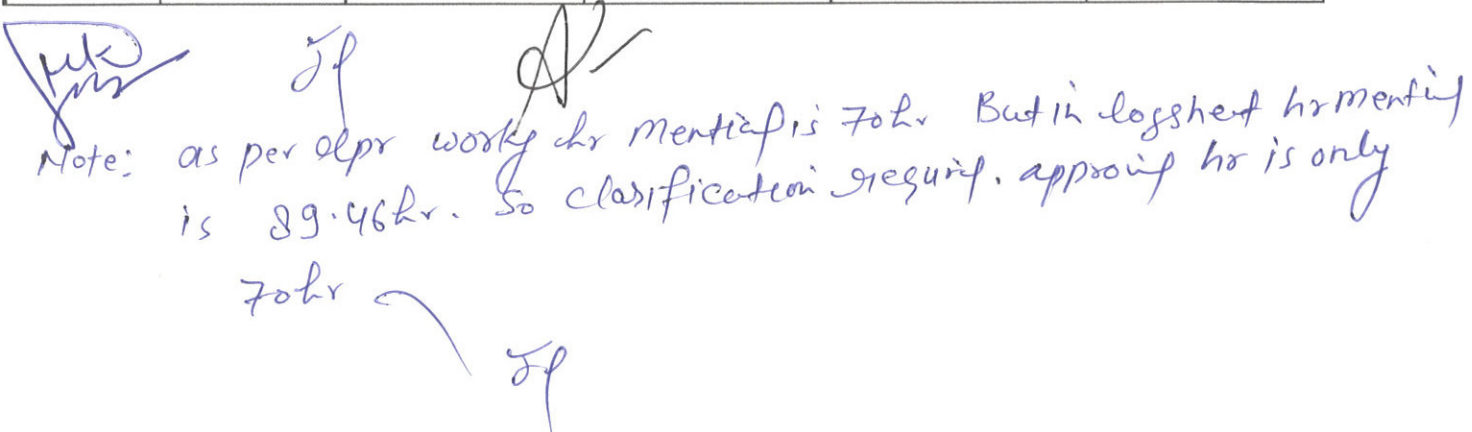 Note: as per dpr workg hr mentief is 70hr But in logsheet hr mentinf
is 89.46hr. So clarification requirf. approvif hr is only
70hr